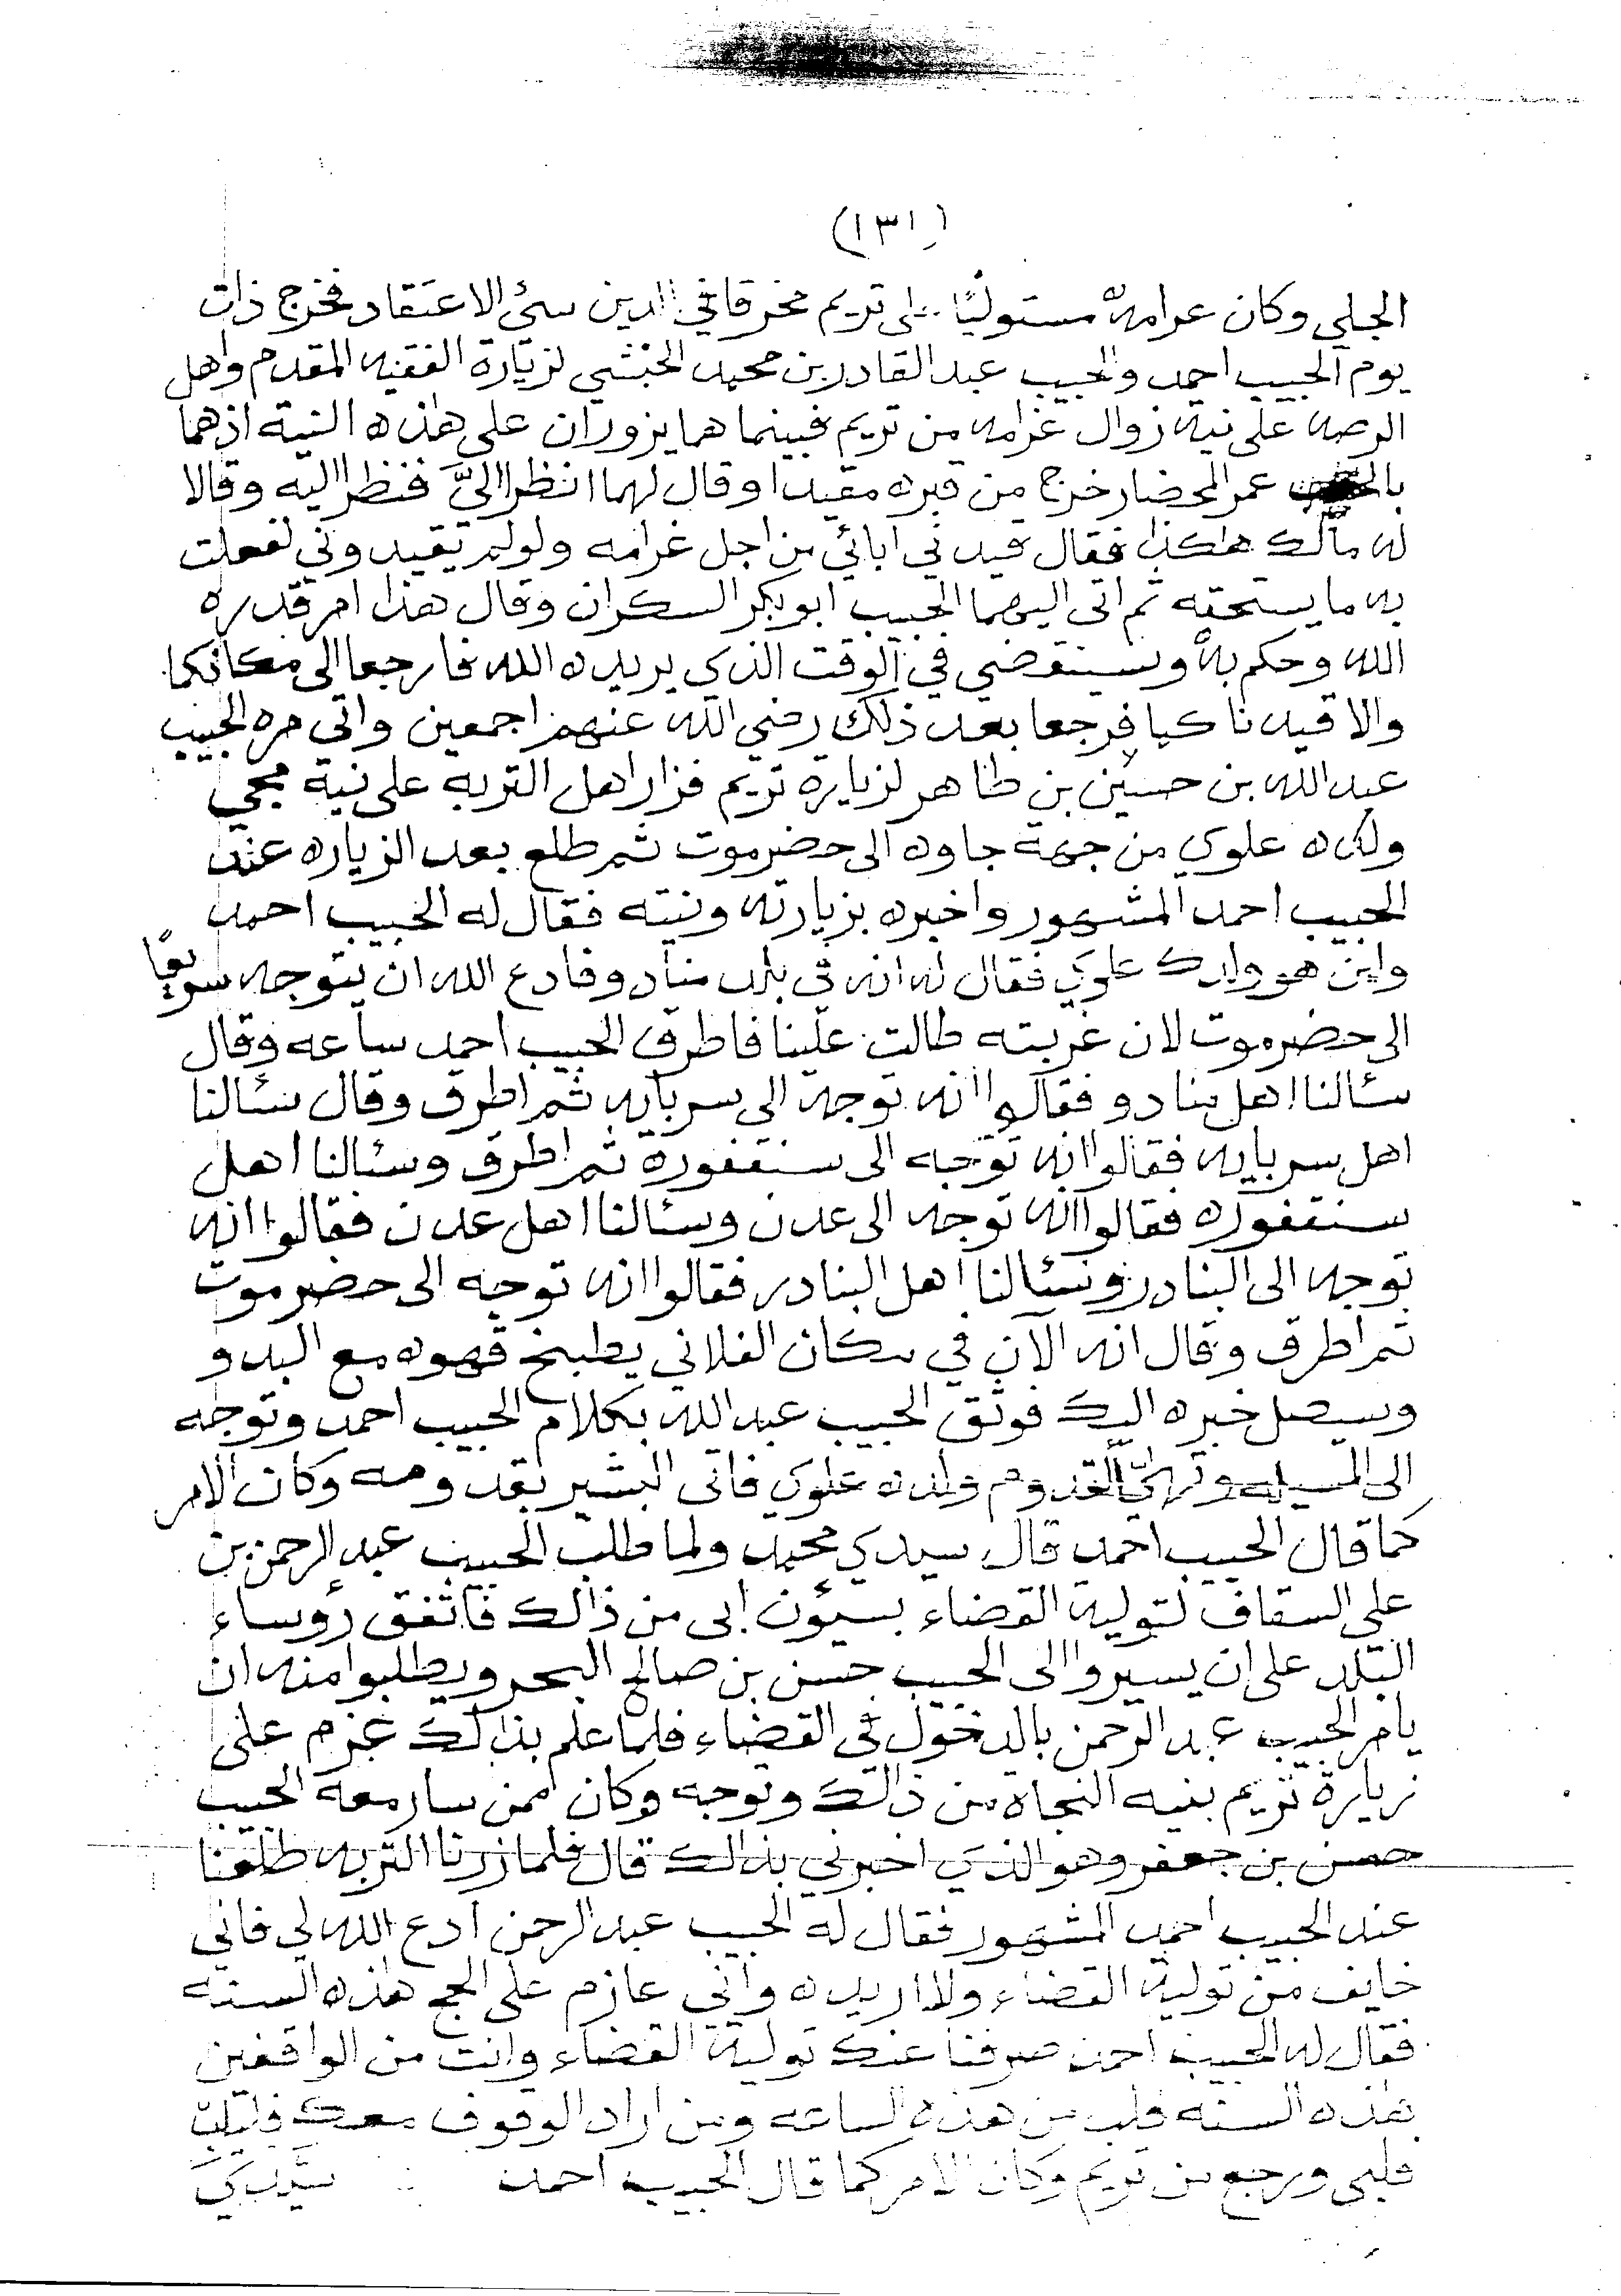 (١٣١)
الجلي وكان عرامه مستوليًا على تريم مخرقا في الدين سيئ الاعتقاد فخرج ذات
يوم الحبيب احمد والحبيب عبد القادر بن محمد الحبشي لزيارة الفقيه المقدم واهل
الرصه على نية زوال غرامه من تريم فبينما هما يزوران على هاذه النية اذ هما
عمر المحضار خرج من قبره مقيدا وقال لهما انظرا اليَّ فنظرا اليه وقالا
له مالك هاكذا فقال قيدني ابائي من اجل غرامه ولو لم يقيدوني لفعلت
به ما يستحقه ثم اتى اليهما الحبيب ابوبكر السكران وقال هذا امر قدره
الله وحكم به وسينقضي في الوقت الذي يريده الله فارجعا الى مكانكما
والا قيدناكما فرجعا بعد ذلك رضي الله عنهم اجمعين واتى مره الحبيب
عبد الله بن حسين بن طاهر لزيارة تريم فزار اهل التربه على نية مجي
ولده علوي من جهة جاوه الى حضرموت ثم طلع بعد الزياره عند
الحبيب احمد المشهور واخبره بزيارته ونيته فقال له الحبيب احمد
واين هو ولدك علوي فقال له انه في بلد منادو فادع الله ان يتوجه سريعًا
الى حضرموت لان غربته طالت علينا فاطرق الحبيب احمد ساعه وقال
سئالنا اهل منادو فقالوا انه توجه الى سربايه ثم اطرق وقال سئالنا
اهل سربايه فقالوا انه توجه الى سنقفوره ثم اطرق وسئالنا اهل
سنقفوره فقالوا انه توجه الى عدن وسئالنا اهل عدن فقالوا انه
توجه الى البنادر وسئالنا اهل البنادر فقالوا انه توجه الى حضرموت
ثم اطرق وقال انه الان في مكان الفلاني يطبخ قهوه مع البدو
وسيصل خبره اليك فوثق الحبيب عبد الله بكلام الحبيب احمد وتوجه
الى المسيله وتهيّأ لقدوم ولده علوي فاتى البشير بقدومه وكان الامر
كما قال الحبيب احمد قال سيدي محمد ولما طلب الحبيب عبد الرحمن بن
علي السقاف لتولية القضاء بسيؤن ابى من ذالك فاتفق رؤساء
البلد على ان يسيروا الى الحبيب حسن بن صالح البحر ويطلبوا منه ان
يامر الحبيب عبد الرحمن بالدخول في القضاء فلما علم بذالك عزم على
زيارة تريم بنيه النجاه من ذالك وتوجه وكان ممن سار معه الحبيب
حسن بن جعفر وهو الذي اخبرني بذالك قال فلما زرنا التربه طلعنا
عند الحبيب احمد المشهور فقال له الحبيب عبد الرحمن ادع الله لي فاني
خايف من تولية القضاء ولا اريده واني عازم على الحج هاذه السنه
فقال له الحبيب احمد صرفنا عنك تولية القضاء وانت من الواقفين
هذه السنه فلب من هذه الساعه ومن اراد الوقوف معك فليلب
فلبى ورجع من تريم وكان الامر كما قال الحبيب احمد سيدي